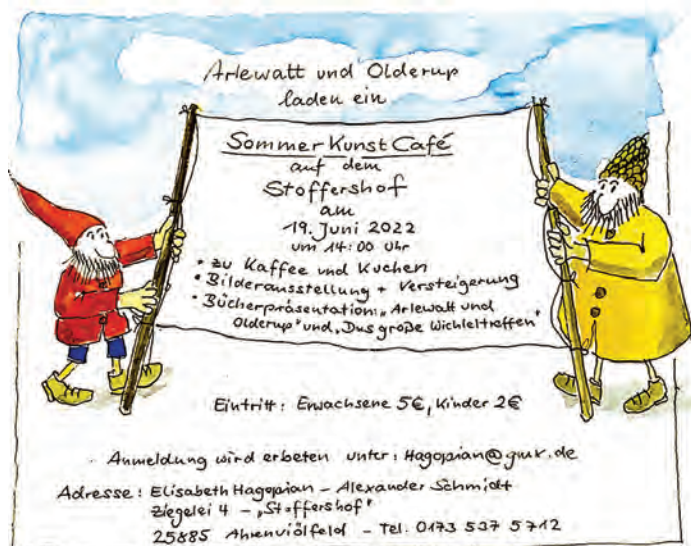 Arlewatt und Olderup
laden ein
SommerKunstCafé
auf dem
Stoffershof
am
19. Juni 2022
um 14:00 Uhr
• zu Kaffee und Kuchen
• Bilderausstellung + Versteigerung
• Bücherpräsentation: „Arlewatt und
Olderup" und „Das große Wichteltreffen"
Eintritt: Erwachsene 5€, Kinder 2€
Anmeldung wird erbeten unter: Hagopian@gmx.de
Adresse: Elisabeth Hagopian – Alexander Schmidt
Ziegelei 4 – „Stoffershof"
25885 Ahrenviölfeld – Tel. 0173 537 5712